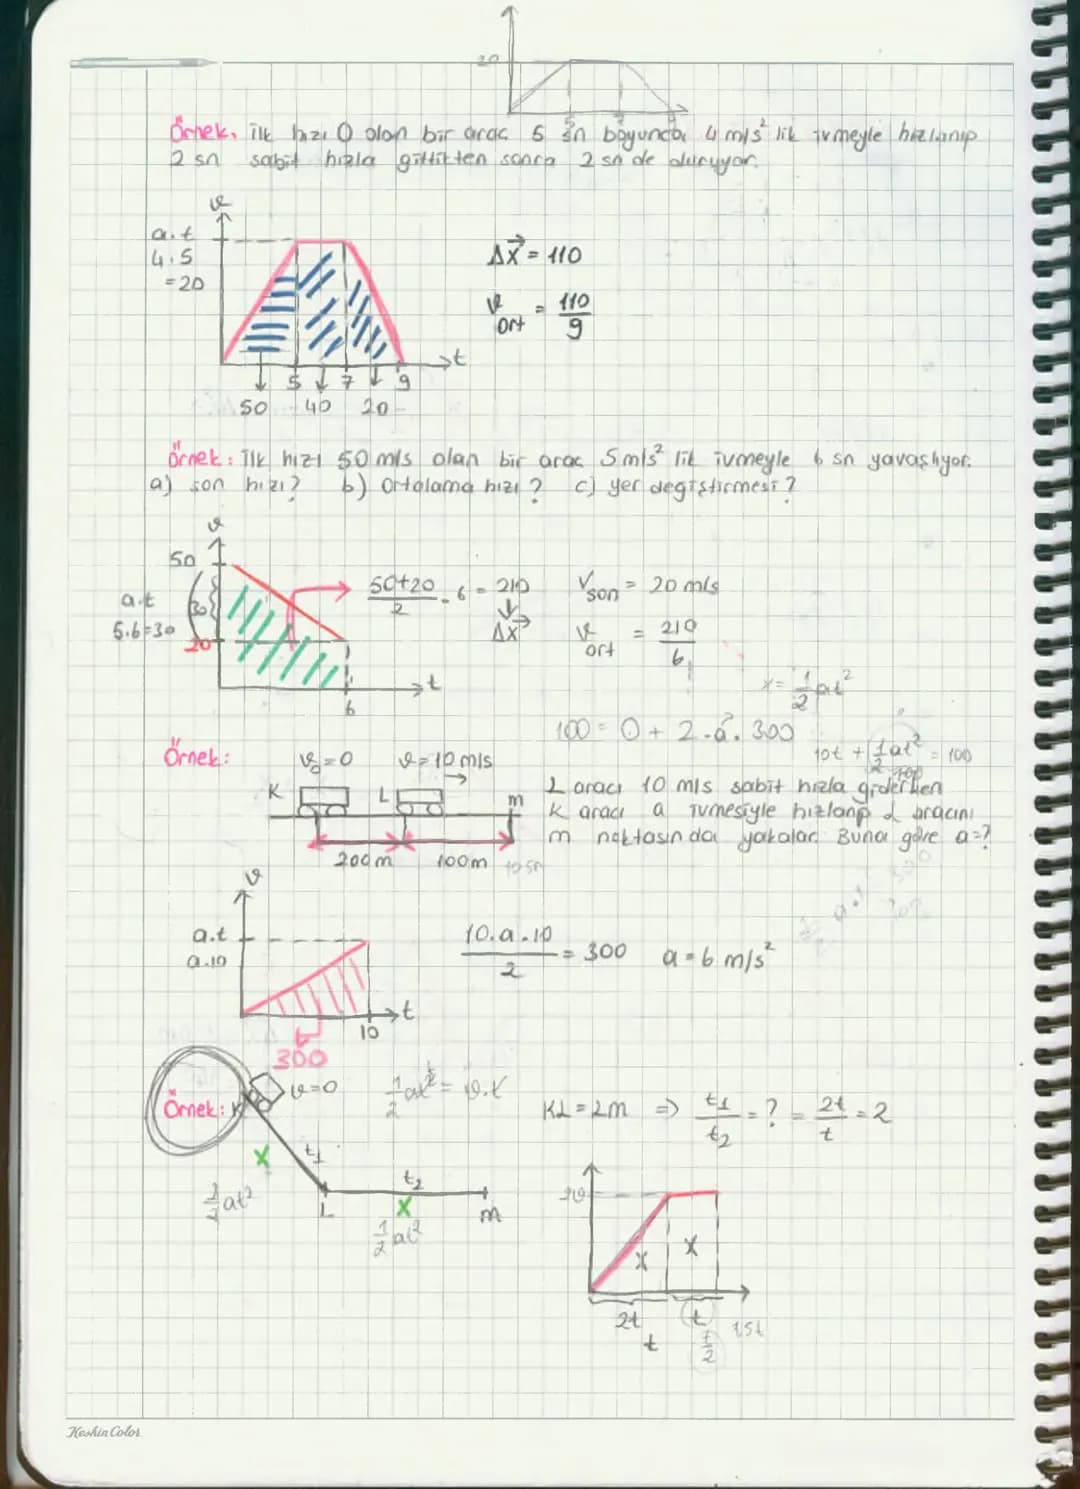 20
5 7 9
Örnek. İlk hızı 0 olan bir araç 5 sn boyunca 4 m/s² lik ivmeyle hızlanıp
2 sn sabit hızla gittikten sonra 2 sn de duruyor.
v
a.t
4.5
=20
Δx = 110
v ort = 110/9
t
5 7 9
50 40 20
Örnek: İlk hızı 50 m/s olan bir araç 5 m/s² lik ivmeyle 6 sn yavaşlıyor.
a) son hızı? b) Ortalama hızı? c) yer değiştirmesi?
v
50
a.t
5.6=30
30
20
(50+20)/2 . 6 = 210
Δx
Vson = 20 m/s
v ort = 210/6
t
6
x = 1/2 at²
100 = 0 + 2.a. 300
10t + 1/2 at² = 100
Örnek:
v₀=0 v=10 m/s
K L m
200m 100m 10 sn
L aracı 10 m/s sabit hızla giderken
K aracı a ivmesiyle hızlanıp L aracını
m noktasında yakalar. Buna göre a=?
v
a.t
a.10
t
10
300
10.a.10/2 = 300 a=6 m/s²
Örnek: K
v=0
1/2 at² = v.t
KL=LM ⇒ t₁/t₂ = ? = 2t/t = 2
x t₁
1/2 at²
L
t₂
x
1/2 at²
m
x x
2t t
t 1/2
1,5t
Keskin Color